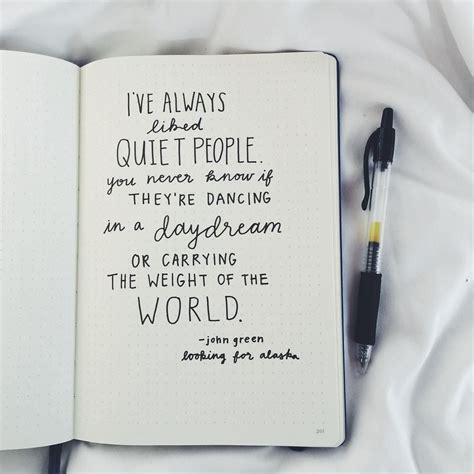 I'VE ALWAYS
liked
QUIET PEOPLE.
you never know if
THEY'RE DANCING
in a daydream
OR CARRYING
THE WEIGHT OF THE
WORLD.
-john green
looking for alaska
201